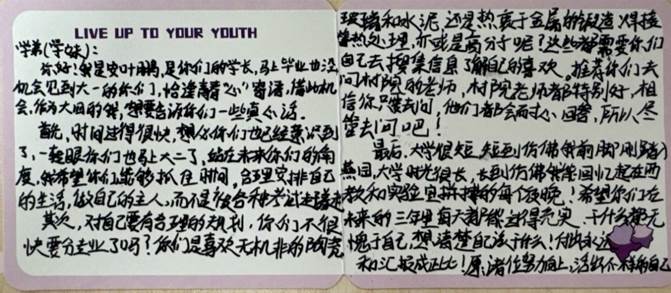 LIVE UP TO YOUR YOUTH
学弟(学妹):
你好!我是安叶鹏,是你们的学长,马上毕业也没
机会见到大一的你们,恰逢寄语,借此机
会,作为大四的我,想要告诉你们一些真心话。
首先,时间过得很快,想必你们也已经意识到
了,一转眼你们也马上大二了,站在未来你们的角
度,我希望你们能够抓住时间,合理安排自己
的生活,做自己的主人,而不是被各种考试走
其次,对自己要有合理的规划,你们不很
快要分专业了吗?你们是喜欢无机非的陶瓷
玻璃和水泥,还是热衷于金属的锻造焊接
热处理,亦或是高分子呢?这些都需要你们
自己去搜集信息了解自己的喜欢。推荐你们去
问材院的老师,材院老师都特别好,相
信你只要去问,他们都会耐心回答,所以,尽
管去问吧!
最后,大学很短,短到仿佛我前脚刚踏入
燕园,大学时光很长,长到仿佛我能回忆起在西
教和实验室拼搏的每个夜晚!希望你们在
未来的三年里每天都能过得充实,干什么都无
愧于自己,想清楚自己该干什么!付出永远
和汇报成正比!愿诸位努力向上,活出不一样的自己